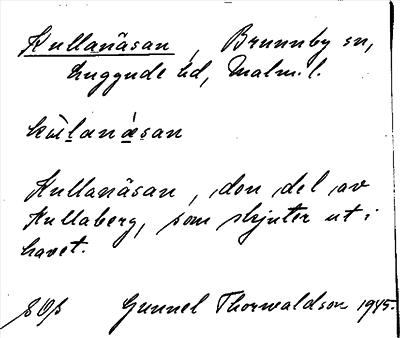 Kullanäsan, Brunnby sn,
Luggude hd, Malm. l.
kùlanásan
Kullanäsan, den del av
Kullaberg, som skjuter ut i
havet.
Gunnel Thorwaldson 1945.